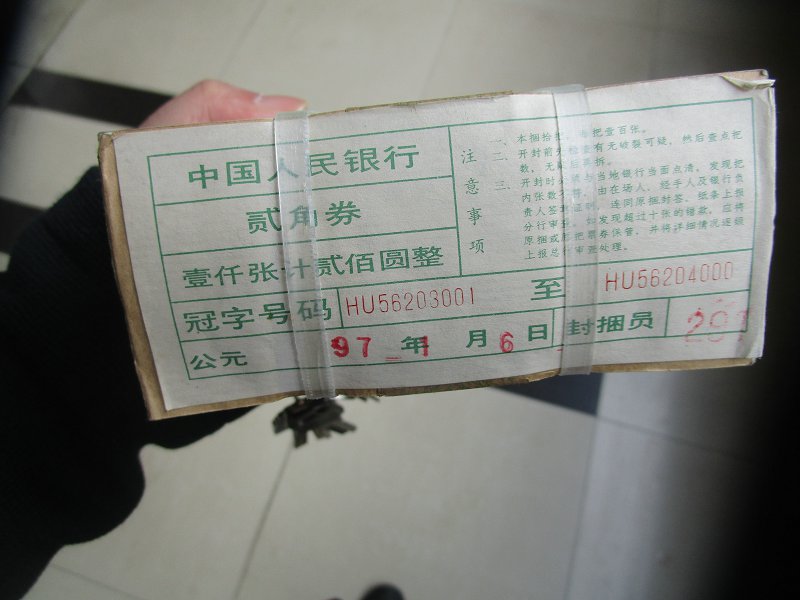 中国人民银行
贰角券
壹仟张 计贰佰圆整
冠字号码 HU56203001 至 HU56204000
公元 97年1月6日 封捆员
注意事项
一、本捆拾把，每把壹百张。
二、开封前先检查有无破裂可疑，然后查点把
数，无误后再拆。
三、开封时
与当地银行当面点清，发现把
内张数
由在场人、经手人及银行负
责人签
证明，连同原捆封签、纸条上报
分行审查。如发现超过十张的错款，应将
原捆或原把票券保管，并将详细情况逐级
上报总行审查处理。